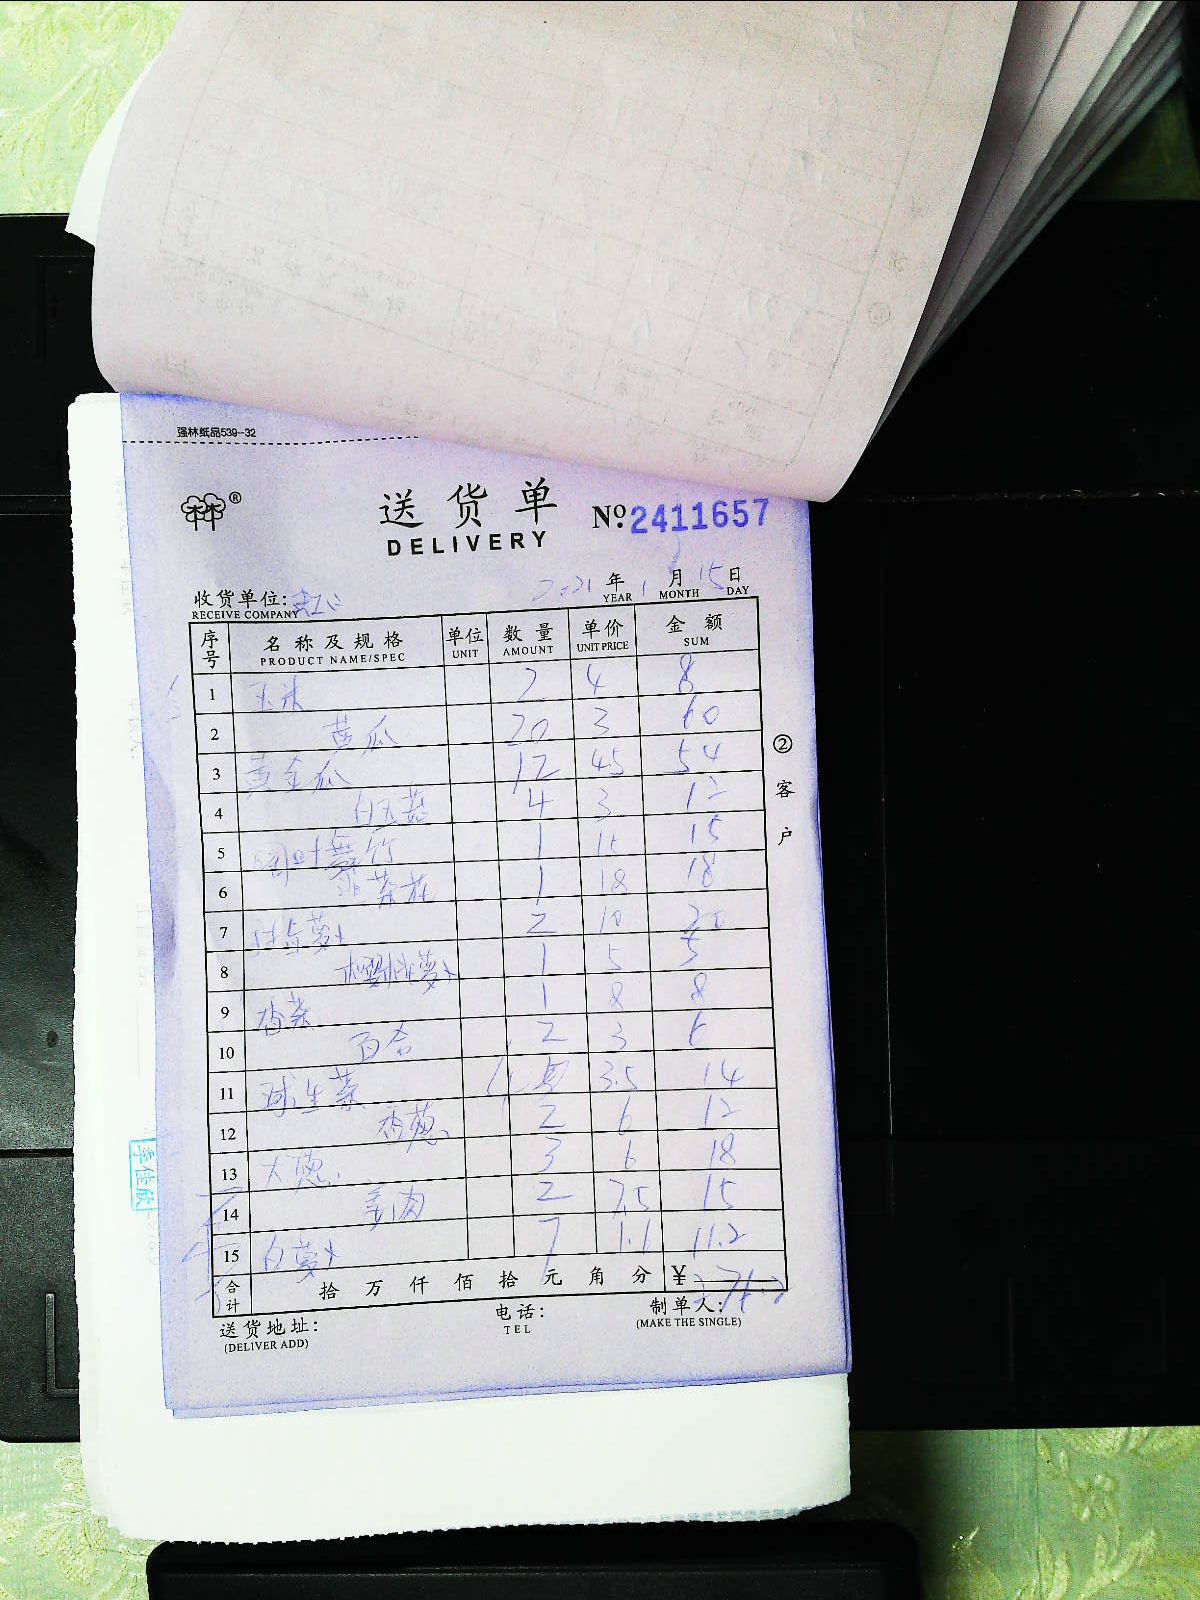 强林纸品539-32
® 送货单 №2411657
DELIVERY
2021年1月15日
YEAR MONTH DAY
收货单位:
RECEIVE COMPANY
序号 名称及规格 单位 数量 单价 金额
PRODUCT NAME/SPEC UNIT AMOUNT UNIT PRICE SUM
1 玉米 2 4 8
2 黄瓜 20 3 60
3 黄金瓜 12 45 54
4 白玉菇 4 3 12
5 1 15 15
6 韭菜花 1 18 18
7 萝卜 2 10 20
8 樱桃萝卜 1 5 5
9 香菜 1 8 8
10 百合 2 3 6
11 球生菜 4 3.5 14
12 香葱 2 6 12
13 大葱 3 6 18
14 2 7.5 15
15 白萝卜 7 1.1 11.2
合计 拾万仟佰拾元角分 ¥
送货地址: 电话: 制单人:
(DELIVER ADD) TEL (MAKE THE SINGLE)
②客户
李佳欣